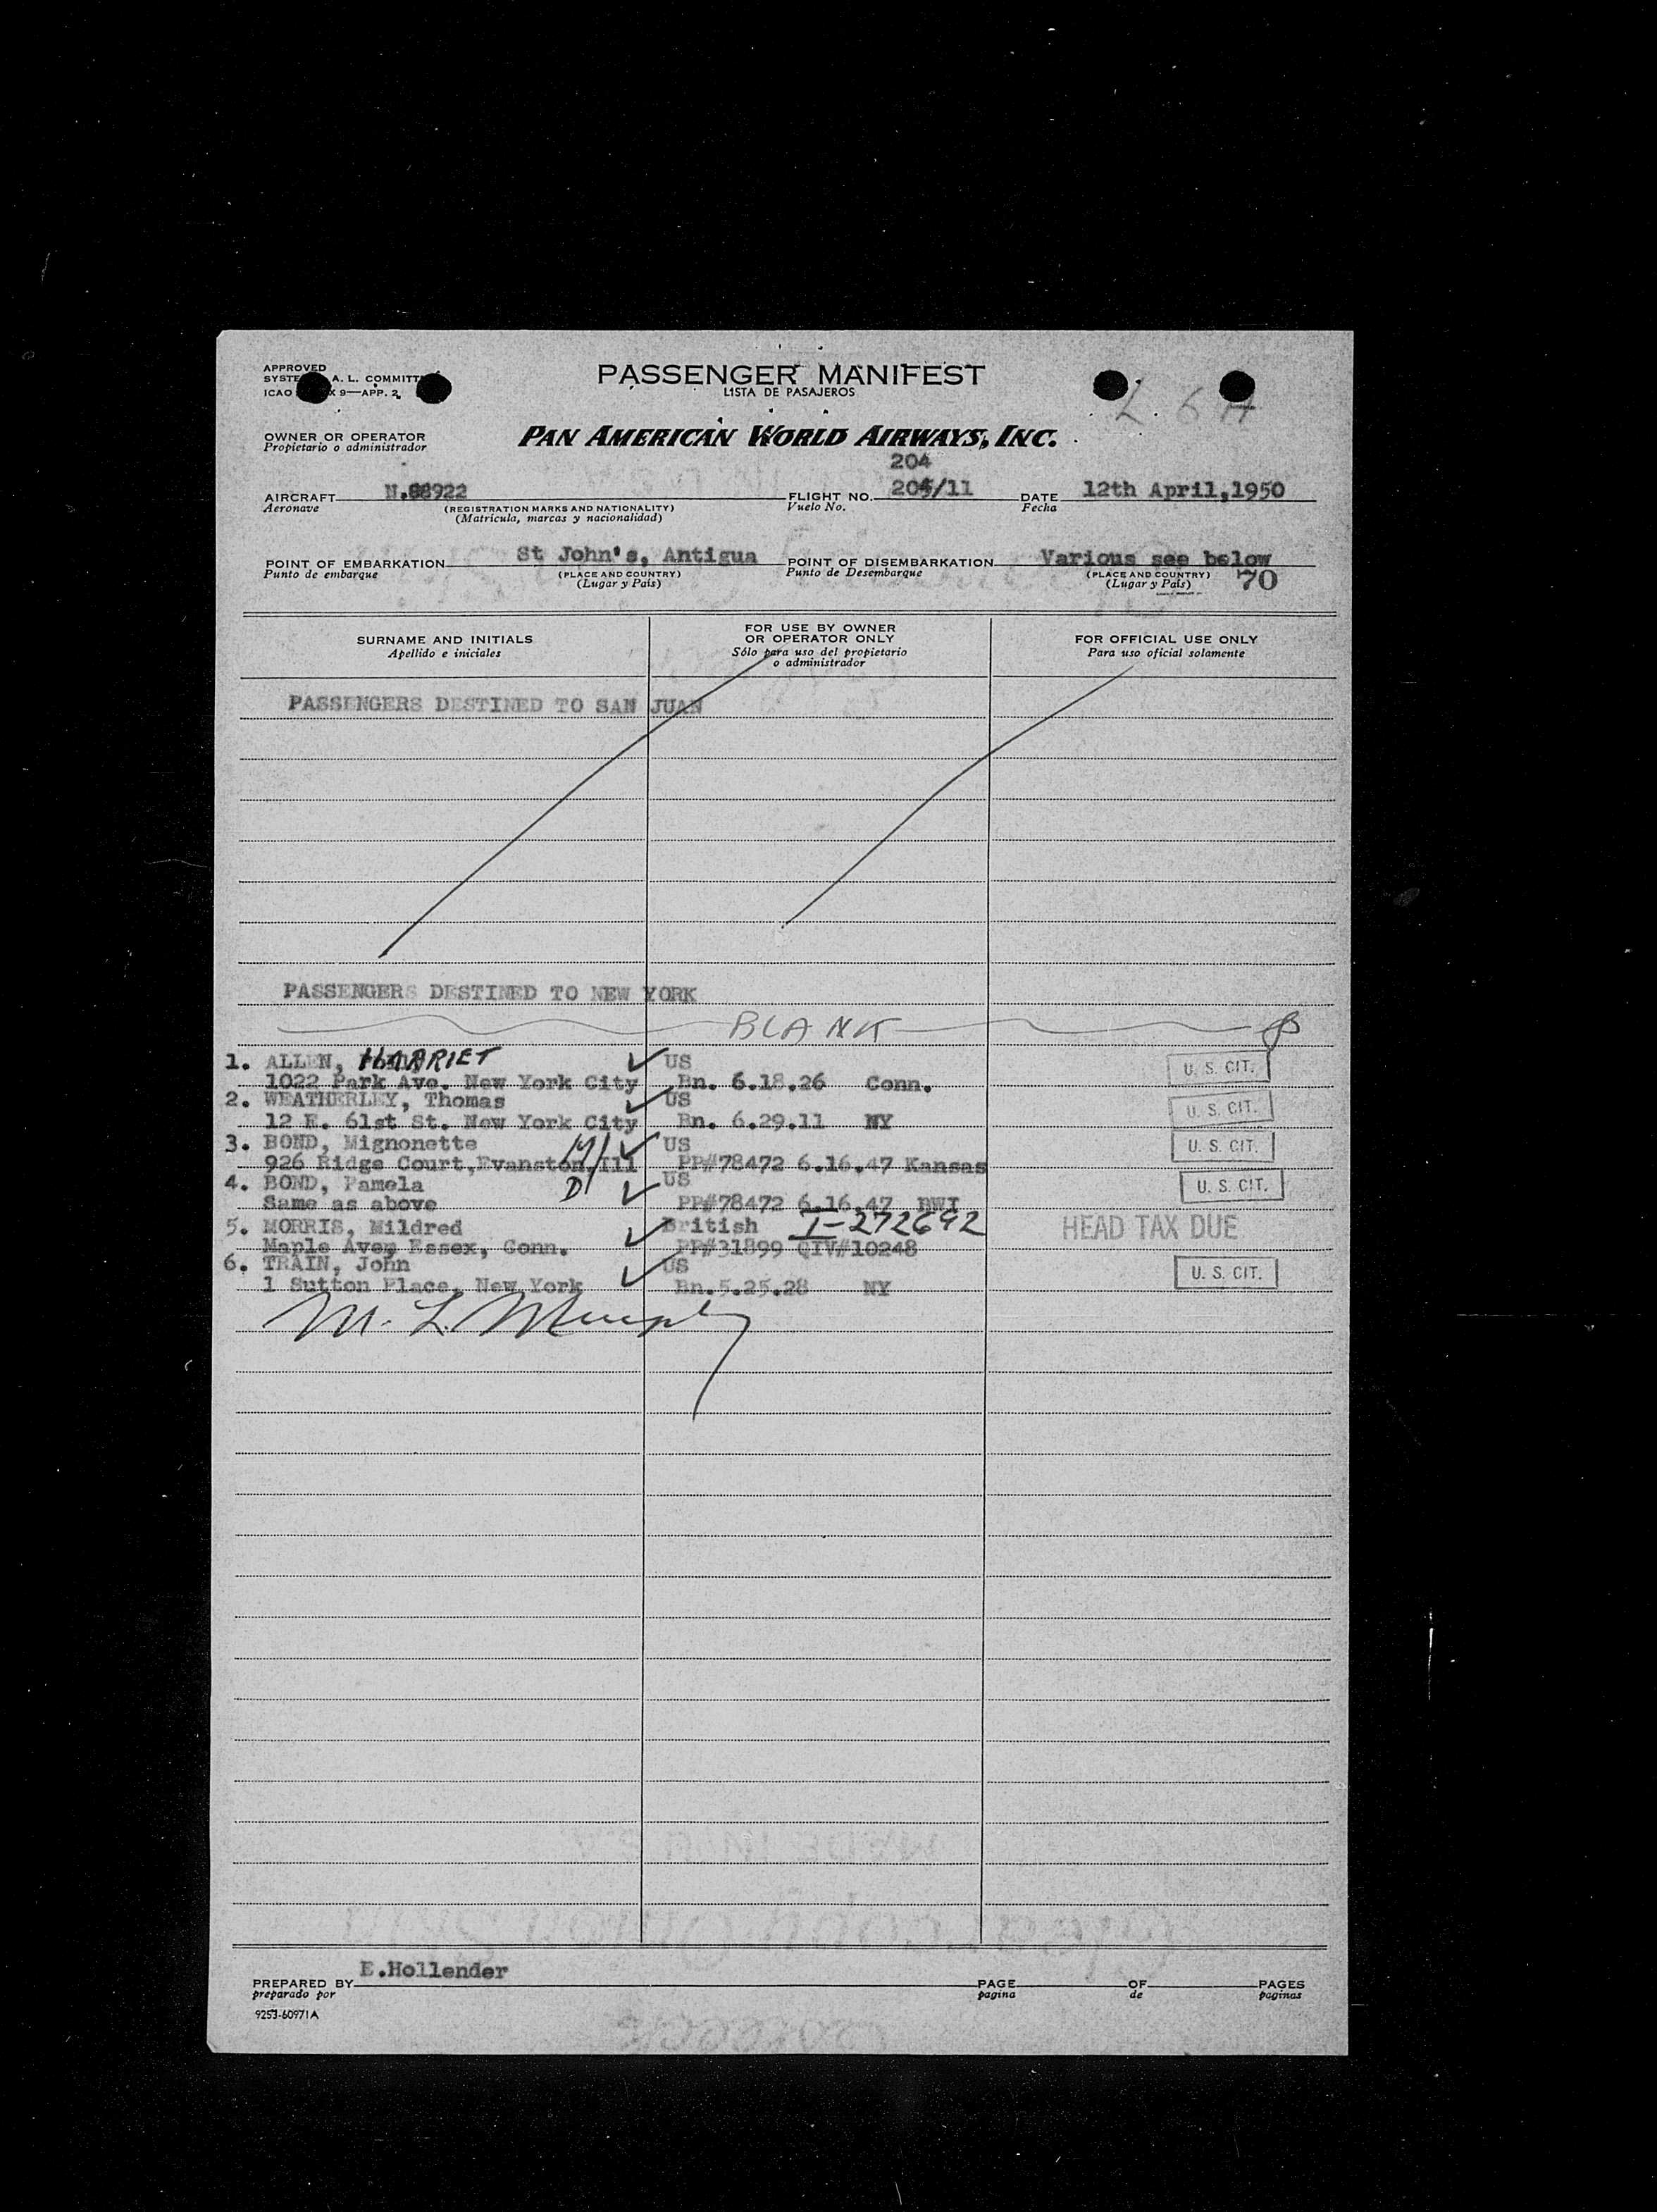 APPROVED
SYSTE A. L. COMMITT
ICAO X 9—APP. 2
PASSENGER MANIFEST
LISTA DE PASAJEROS
L. 6 H
OWNER OR OPERATOR
Propietario o administrador
PAN AMERICAN WORLD AIRWAYS, INC.
204
AIRCRAFT N.88922 FLIGHT NO. 204/11 DATE 12th April,1950
Aeronave (REGISTRATION MARKS AND NATIONALITY) Vuelo No. Fecha
(Matrícula, marcas y nacionalidad)
POINT OF EMBARKATION St John's, Antigua POINT OF DISEMBARKATION Various see below
Punto de embarque (PLACE AND COUNTRY) Punto de Desembarque (PLACE AND COUNTRY)
(Lugar y País) (Lugar y País) 70
SURNAME AND INITIALS
Apellido e iniciales
FOR USE BY OWNER
OR OPERATOR ONLY
Sólo para uso del propietario
o administrador
FOR OFFICIAL USE ONLY
Para uso oficial solamente
PASSENGERS DESTINED TO SAN JUAN
PASSENGERS DESTINED TO NEW YORK
BLANK
1. ALLEN, HARRIET US U. S. CIT.
1022 Park Ave. New York City Bn. 6.18.26 Conn.
2. WEATHERLEY, Thomas US U. S. CIT.
12 E. 61st St. New York City Bn. 6.29.11 NY
3. BOND, Mignonette M/ US U. S. CIT.
926 Ridge Court,Evanston,Ill PP#78472 6.16.47 Kansas
4. BOND, Pamela D/ US U. S. CIT.
Same as above PP#78472 6.16.47 BWI
5. MORRIS, Mildred British I-272692 HEAD TAX DUE
Maple Ave, Essex, Conn. PP#31899 QIV#10248
6. TRAIN, John US U. S. CIT.
1 Sutton Place, New York Bn.5.25.28 NY
M. L. Murphy
PREPARED BY E.Hollender PAGE OF PAGES
preparado por pagina de paginas
9253-60971A